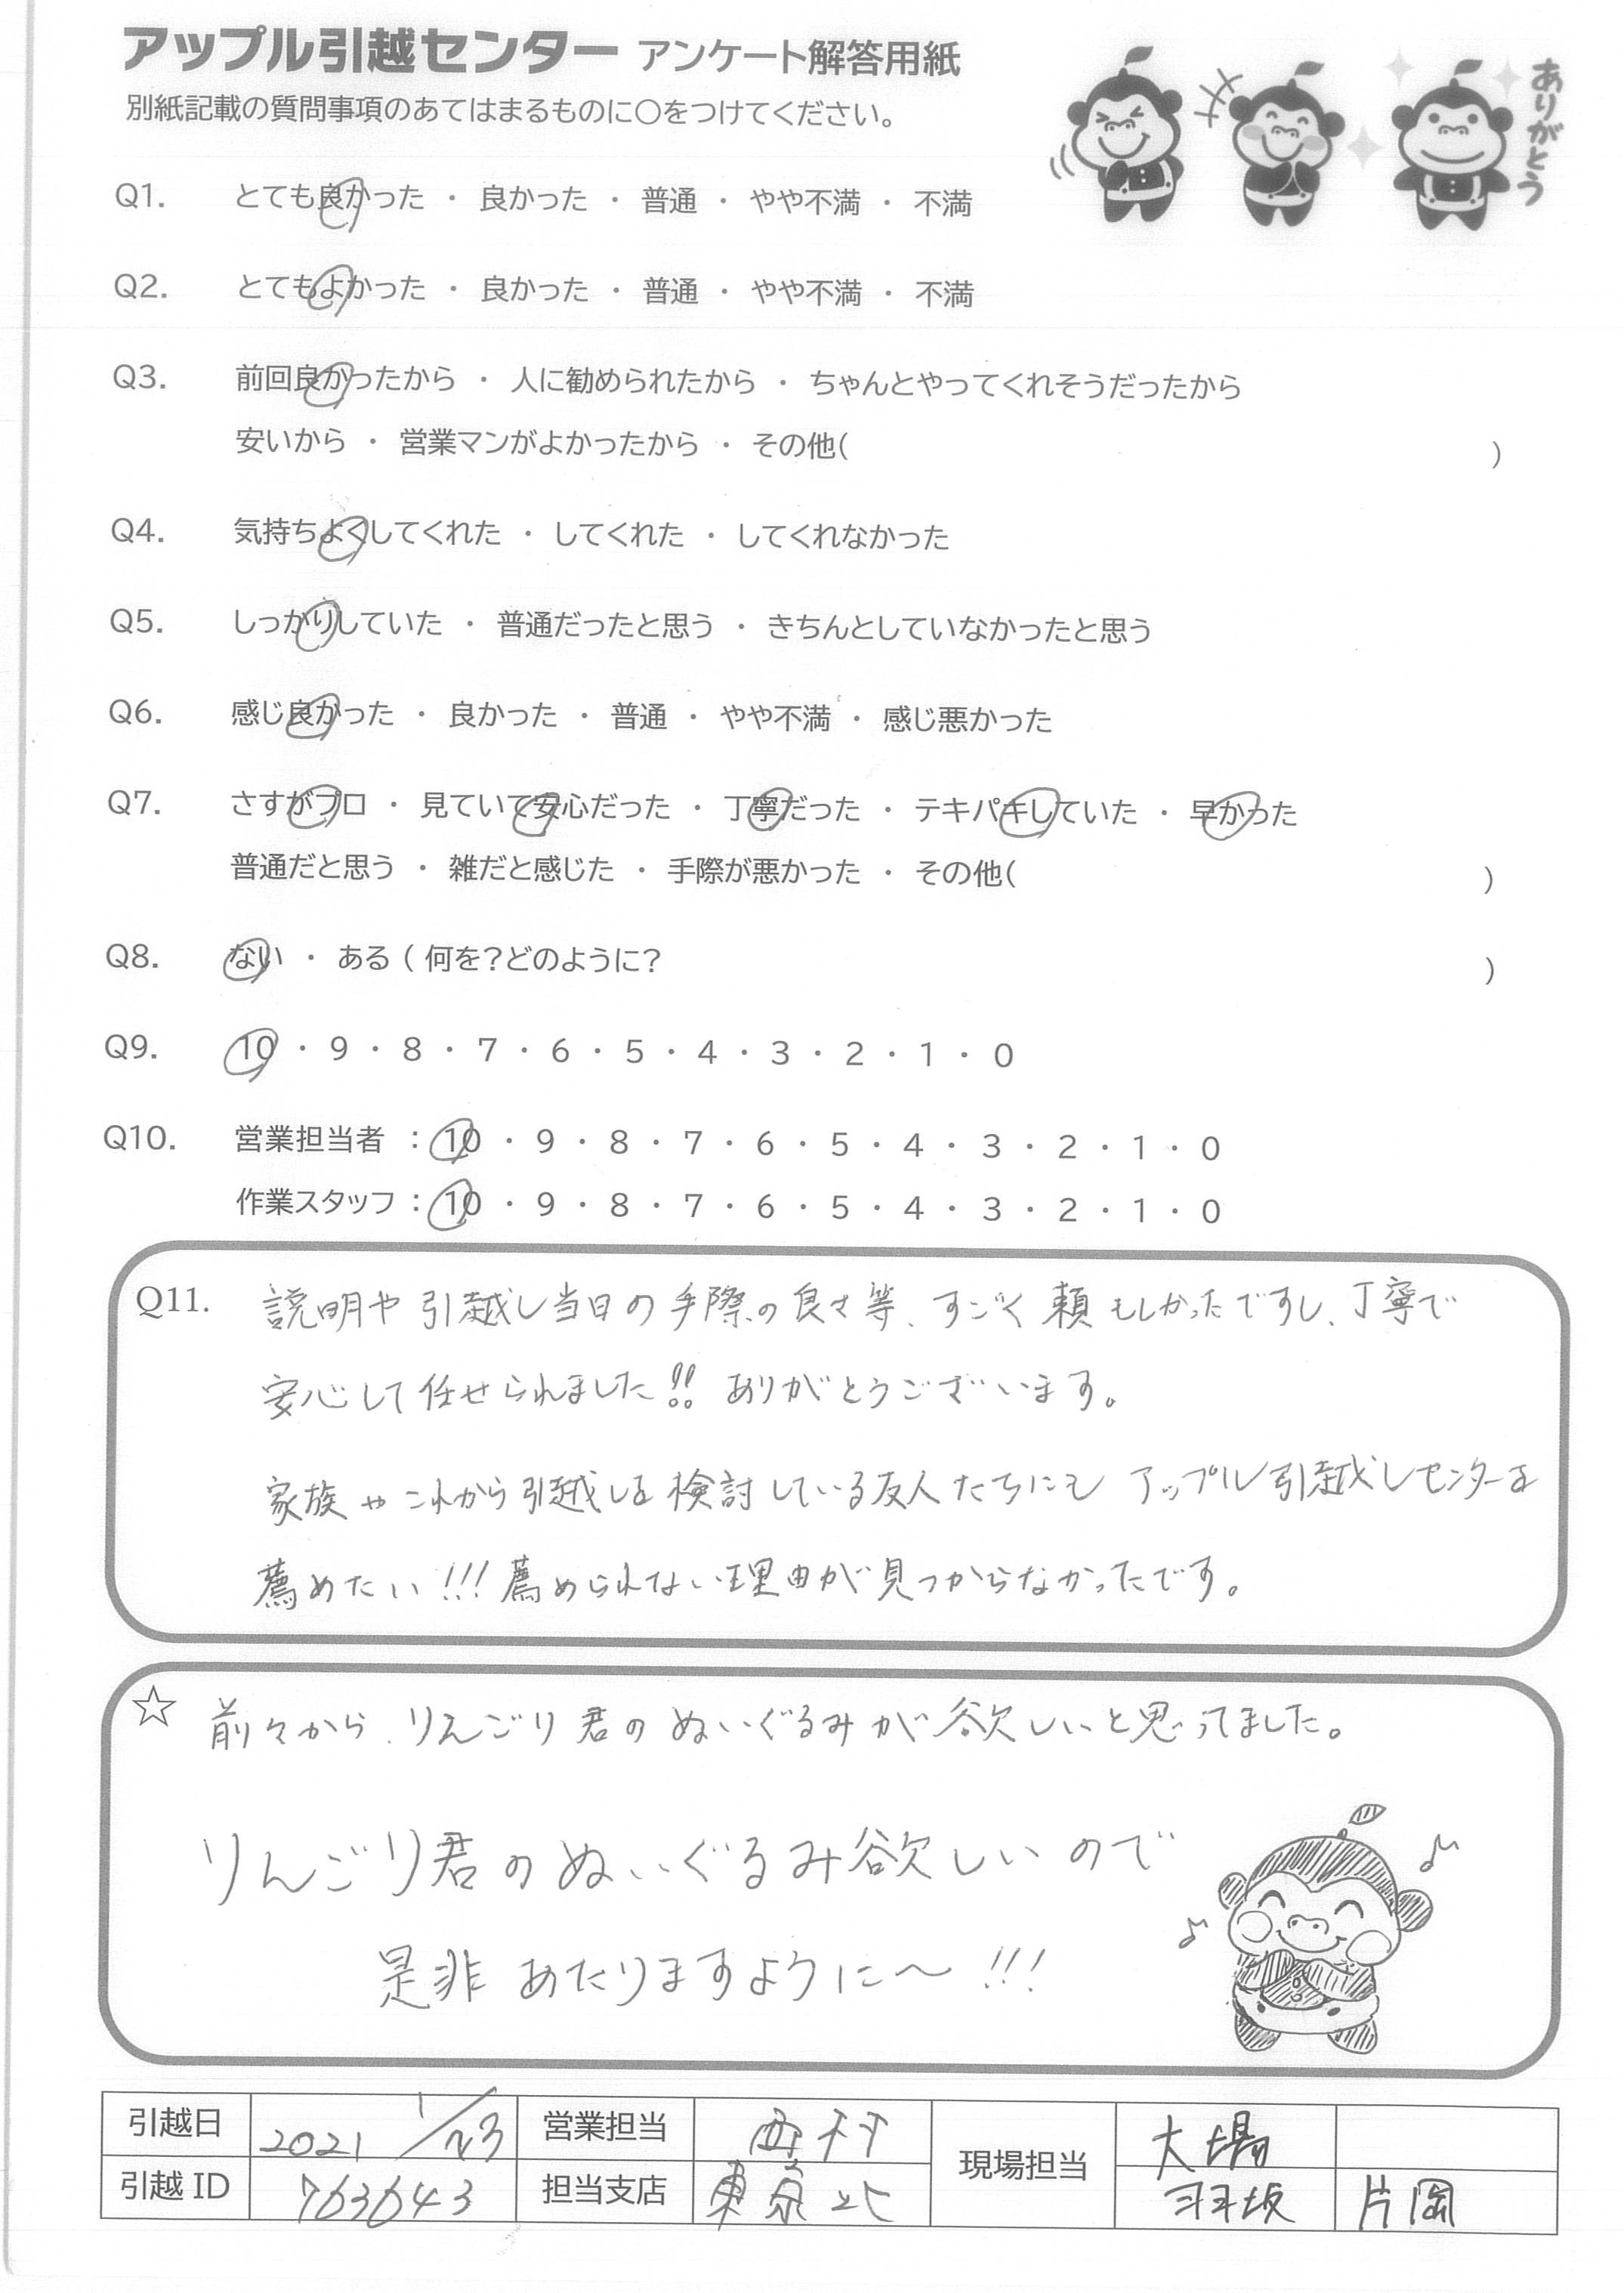 アップル引越センター アンケート解答用紙
別紙記載の質問事項のあてはまるものに○をつけてください。
ありがとう
Q1. とても良かった ・ 良かった ・ 普通 ・ やや不満 ・ 不満
Q2. とてもよかった ・ 良かった ・ 普通 ・ やや不満 ・ 不満
Q3. 前回良かったから ・ 人に勧められたから ・ ちゃんとやってくれそうだったから
安いから ・ 営業マンがよかったから ・ その他( )
Q4. 気持ちよくしてくれた ・ してくれた ・ してくれなかった
Q5. しっかりしていた ・ 普通だったと思う ・ きちんとしていなかったと思う
Q6. 感じ良かった ・ 良かった ・ 普通 ・ やや不満 ・ 感じ悪かった
Q7. さすがプロ ・ 見ていて安心だった ・ 丁寧だった ・ テキパキしていた ・ 早かった
普通だと思う ・ 雑だと感じた ・ 手際が悪かった ・ その他( )
Q8. ない ・ ある ( 何を?どのように? )
Q9. 10 ・ 9 ・ 8 ・ 7 ・ 6 ・ 5 ・ 4 ・ 3 ・ 2 ・ 1 ・ 0
Q10. 営業担当者 : 10 ・ 9 ・ 8 ・ 7 ・ 6 ・ 5 ・ 4 ・ 3 ・ 2 ・ 1 ・ 0
作業スタッフ : 10 ・ 9 ・ 8 ・ 7 ・ 6 ・ 5 ・ 4 ・ 3 ・ 2 ・ 1 ・ 0
Q11. 説明や引越し当日の手際の良さ等、すごく頼もしかったですし、丁寧で
安心して任せられました!! ありがとうございます。
家族やこれから引越しを検討している友人たちにも アップル引越しセンターを
薦めたい!!! 薦められない理由が見つからなかったです。
☆ 前々から、りんごり君のぬいぐるみが欲しいと思ってました。
りんごり君のぬいぐるみ欲しいので
是非あたりますように〜!!!
引越日 2021 1/23 営業担当 西村 現場担当 大場
引越ID 763643 担当支店 東京北 羽坂 片岡